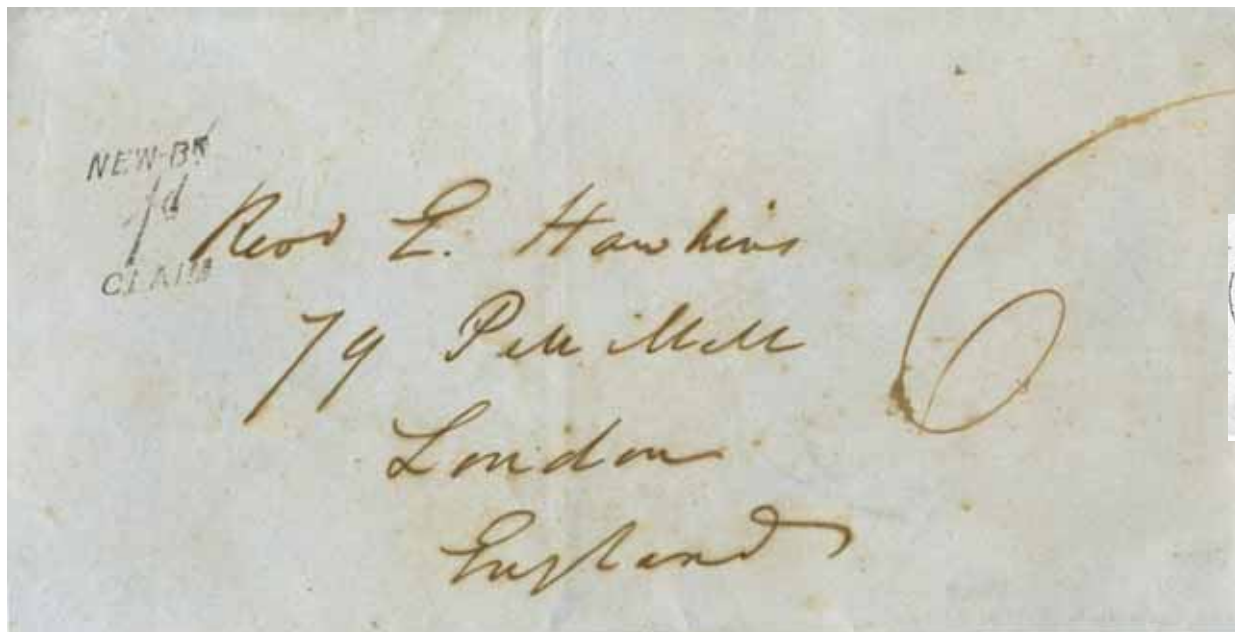 NEW-BK
1d
CLAIM
6
Revd E. Hawkins
79 Pall Mall
London
England